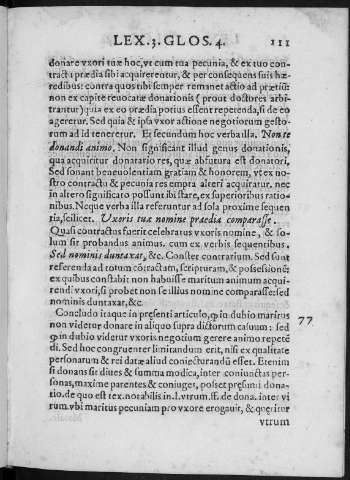 LEX. 3. GLOS. 4. 111
donare vxori tuæ hoc, vt cum tua pecunia, & ex tuo con-
tractu prædia sibi acquirerentur, & per consequens suis hæ-
redibus: contra quos tibi semper remanet actio ad prætiũ:
non ex capite reuocatæ donationis ( prout doctores arbi-
trantur) quia ex eo prædia potius essent repetenda, si de eo
ageretur. Sed quia & ipsa vxor actione negotiorum gesto-
rum ad id teneretur. Et secundum hoc verba illa. Non te
donandi animo, Non significant illud genus donationis,
qua acquiritur donatario res, quæ absutura est donatori,
Sed sonant beneuolentiam gratiam & honorem, vt ex no-
stro contractu & pecunia res empta alteri acquiratur, nec
in altero significato possunt ibi stare, ex superioribus ratio-
nibus. Neque verba illa referuntur ad sola proxime sequen
tia, scilicet. Vxoris tuæ nomine praedia comparasse.
Quasi contractus fuerit celebratus vxoris nomine, & so-
lum sit probandus animus. cum ex verbis sequentibus.
Sed nominis duntaxat, &c. Constet contrarium. Sed sunt
referenda ad totum cõtractam, scripturam, & possessionẽ:
ex quibus constabit non habuisse maritum animum acqui-
rendi vxori, si probet non se illius nomine comparasse: sed
nominis duntaxat, &c.
Concludo itaque in presenti articulo, ꝙ in dubio maritus 77
non videtur donare in aliquo supra dictorum casuum: sed
ꝙ in dubio videtur vxoris negotium gerere animo repetẽ
di. Sed hoc congruenter limitandum erit, nisi ex qualitate
personarum & rei datæ aliud coniecturandũ esset. Etenim
si donans sit diues & summa modica, inter coniunctas per-
sonas, maxime parentes & coniuges, posset presumi dona-
tio. de quo est tex. notabilis in. l. vtrum. ff. de dona. inter vi
rum. vbi maritus pecuniam pro vxore erogauit, & quæritur
vtrum